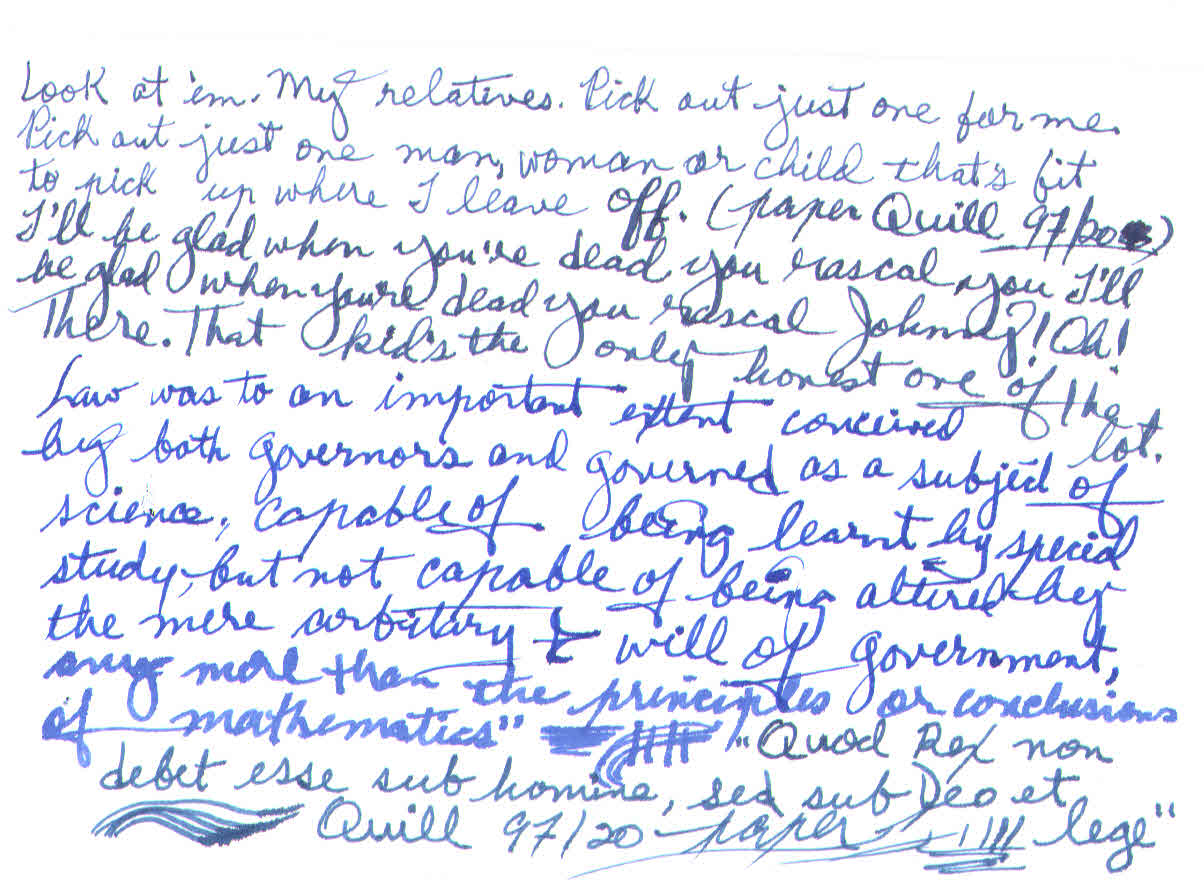 Look at 'em. My relatives. Pick out just one for me.
Pick out just one man, woman or child that's fit
to pick up where I leave off. (paper Quill 97/20)
I'll be glad when you're dead you rascal you I'll
be glad when you're dead you rascal Johnny?! Oh!
There. That kid's the only honest one of the
lot.
Law was to an important extent conceived
by both governors and governed as a subject of
science, capable of being learnt by special
study, but not capable of being altered by
the mere arbitary will of government,
any more than the principles or conclusions
of mathematics" "Quod Rex non
debet esse sub homine, sed sub Deo et
Quill 97/20 paper lege"